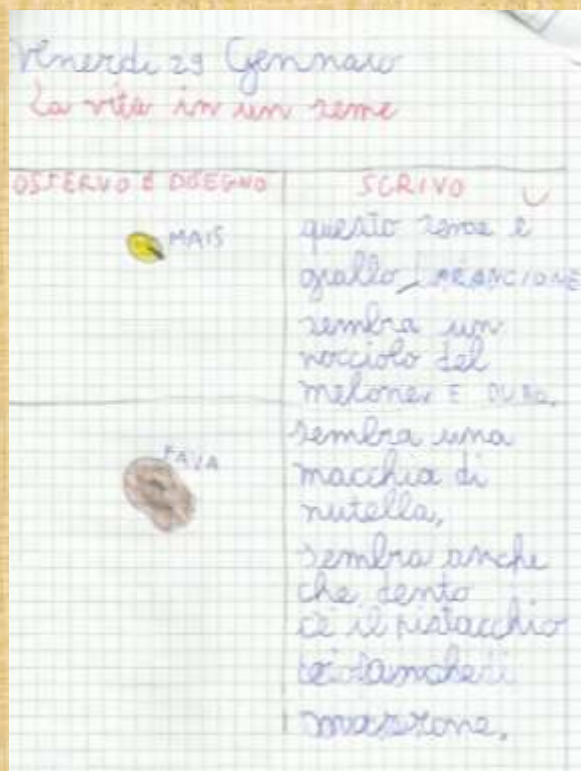 Venerdi 29 Gennaio
La vita in un seme
OSSERVO E DISEGNO
SCRIVO
MAIS
questo seme è
giallo ARANCIONE
sembra un
nocciolo del
melone, E DURO,
FAVA
sembra una
macchia di
nutella,
sembra anche
che dento
c'è il pistacchio
marrone,